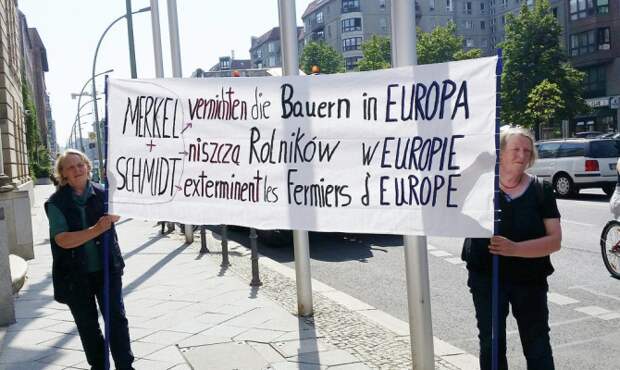 MERKEL
+
SCHMIDT
vernichten die Bauern in EUROPA
niszczą Rolników w EUROPIE
exterminent les Fermiers d'EUROPE